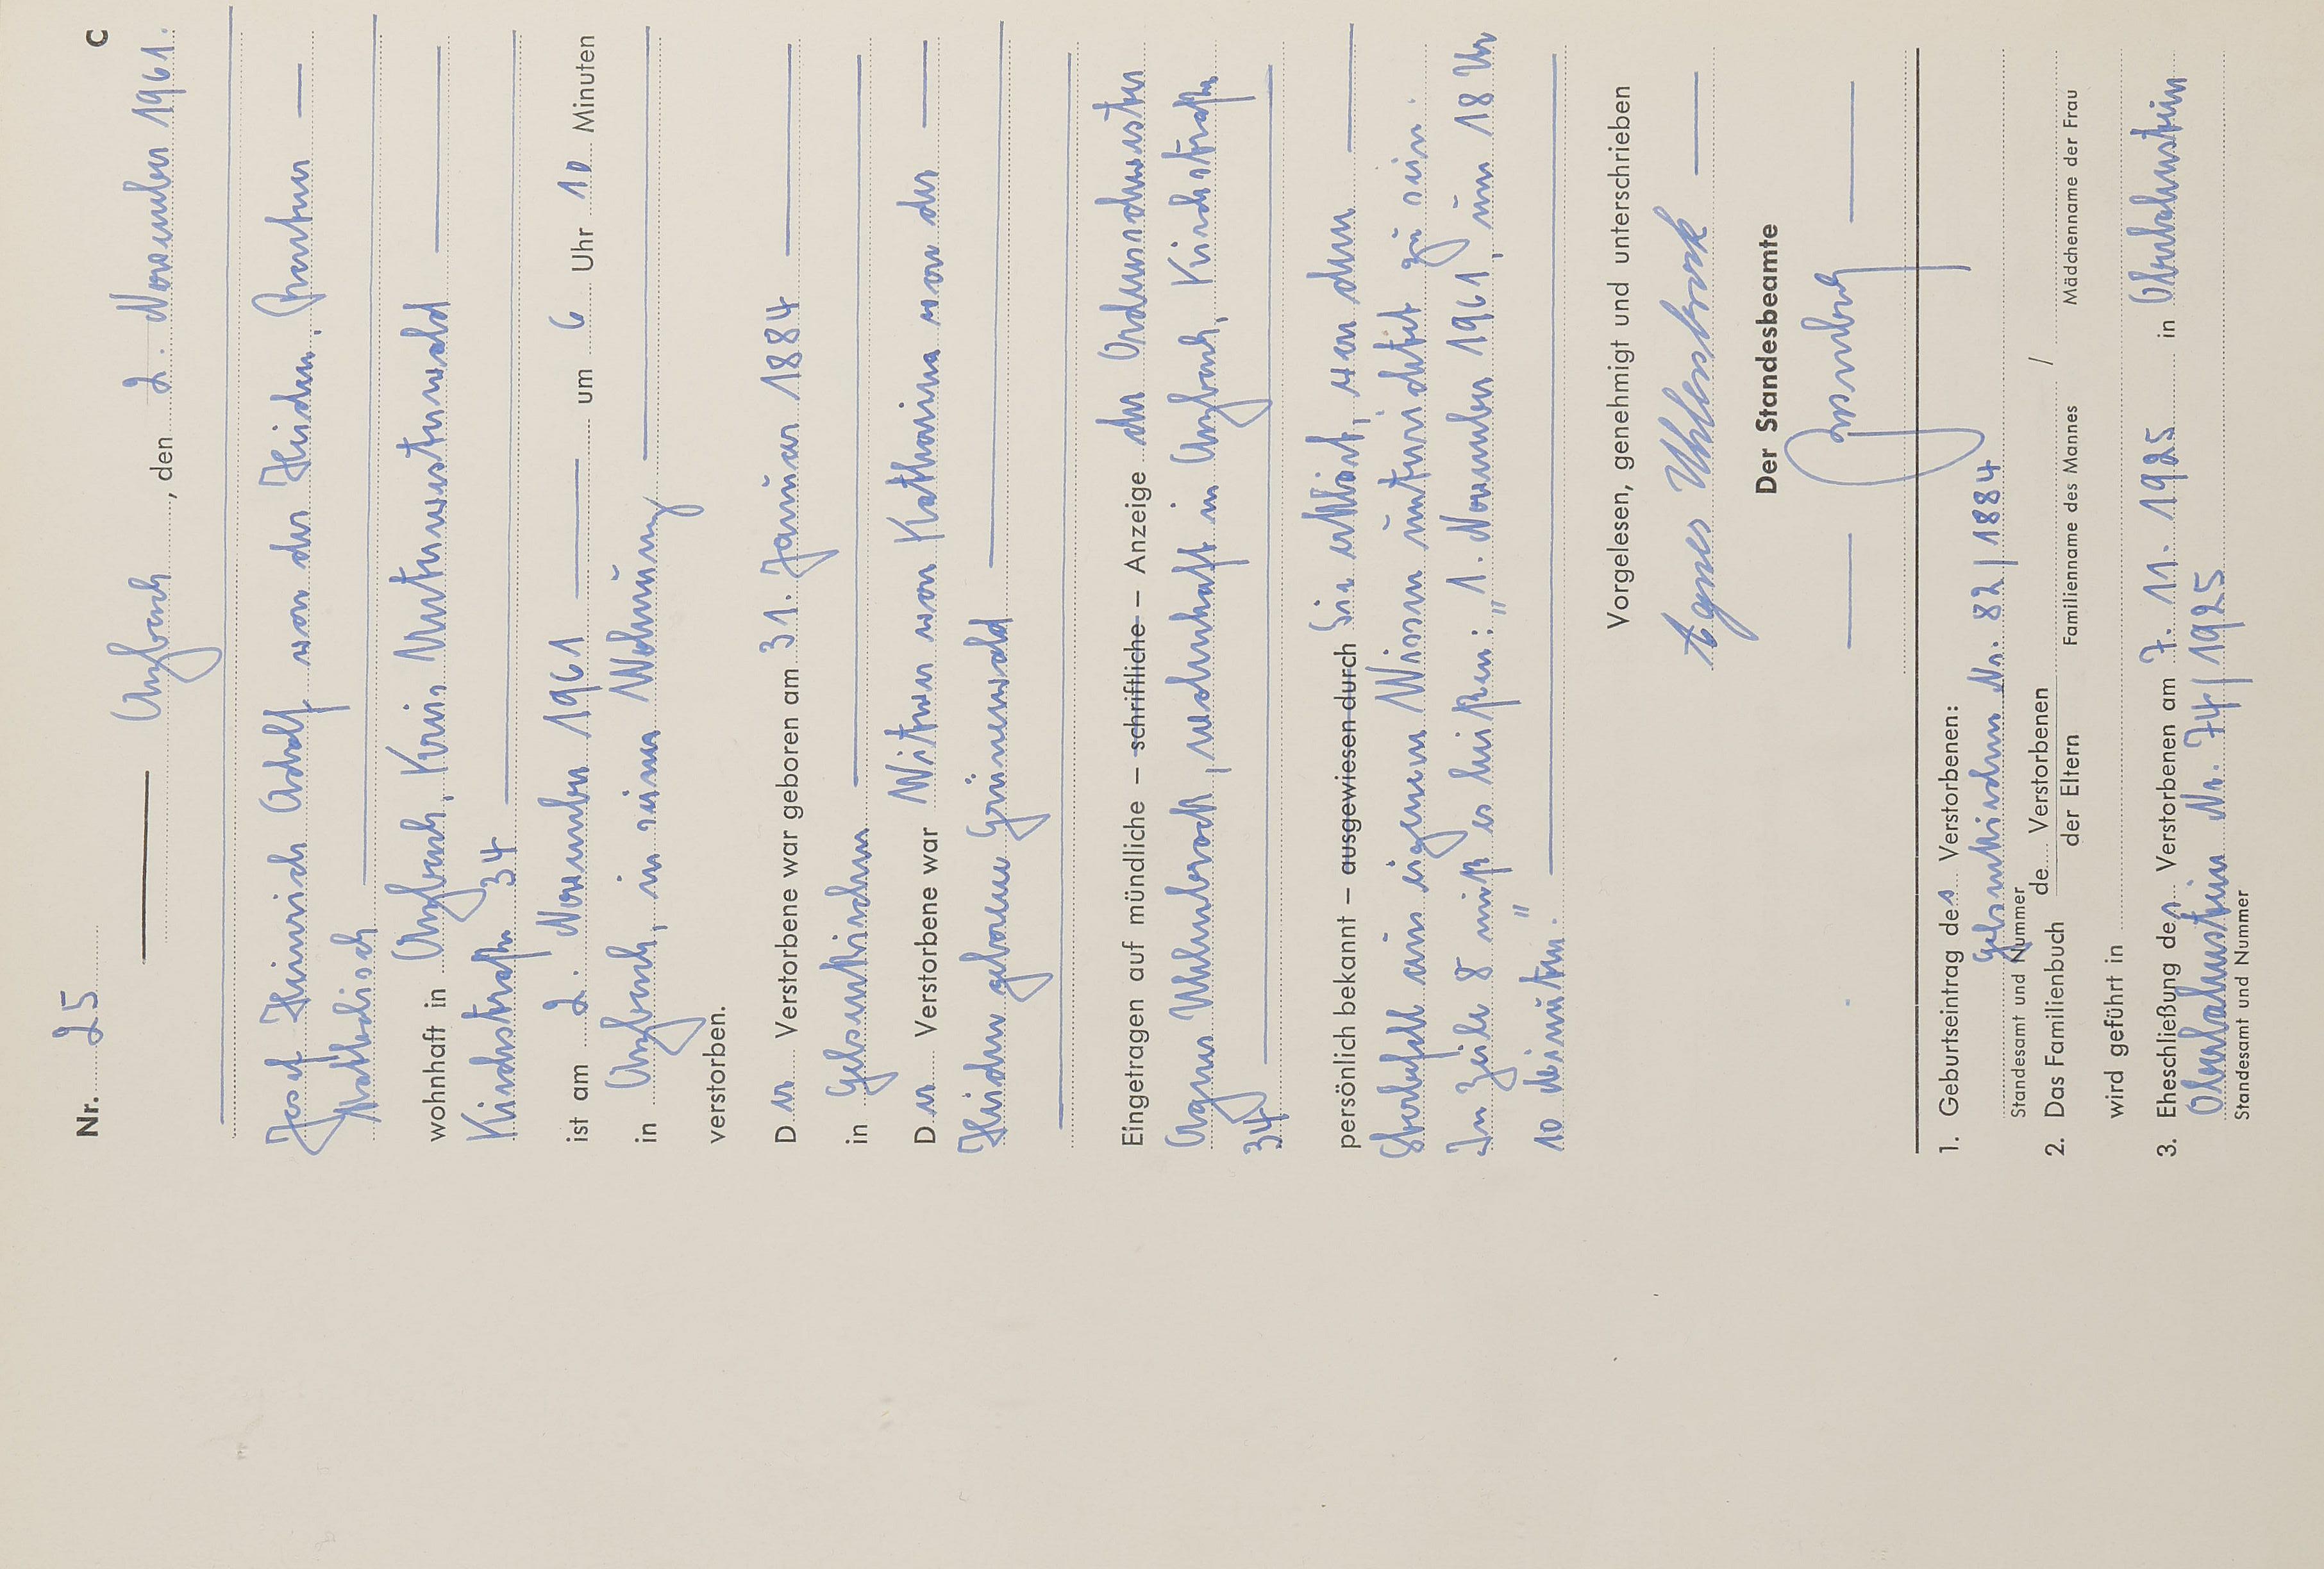 Nr. 25 C
Asbach, den 2. November 1961.
Josef Heinrich Adolf von der Heiden, Rentner
katholisch
wohnhaft in Asbach, Kreis Unterwesterwald
Kirchstraße 34
ist am 2. November 1961 um 6 Uhr 10 Minuten
in Asbach, in seiner Wohnung
verstorben.
Der Verstorbene war geboren am 31. Januar 1884
in Gelsenkirchen
Der Verstorbene war Witwer von Katharina von der
Heiden geborene Grünewald
Eingetragen auf mündliche – schriftliche – Anzeige der Ordensschwester
Agnes Uhlenbrock, wohnhaft in Asbach, Kirchstraße
34
persönlich bekannt – ausgewiesen durch Sie erklärt, von dem
Sterbefall aus eigenem Wissen unterrichtet zu sein.
In Zeile 8 muß es heißen: „1. November 1961, um 18 Uhr
10 Minuten."
Vorgelesen, genehmigt und unterschrieben
Agnes Uhlenbrock
Der Standesbeamte
1. Geburtseintrag des Verstorbenen:
Gelsenkirchen Nr. 82/1884
Standesamt und Nummer
2. Das Familienbuch de Verstorbenen
der Eltern Familienname des Mannes / Mädchenname der Frau
wird geführt in
3. Eheschließung des Verstorbenen am 7. 11. 1925 in Oberlahnstein
Oberlahnstein Nr. 74/1925
Standesamt und Nummer